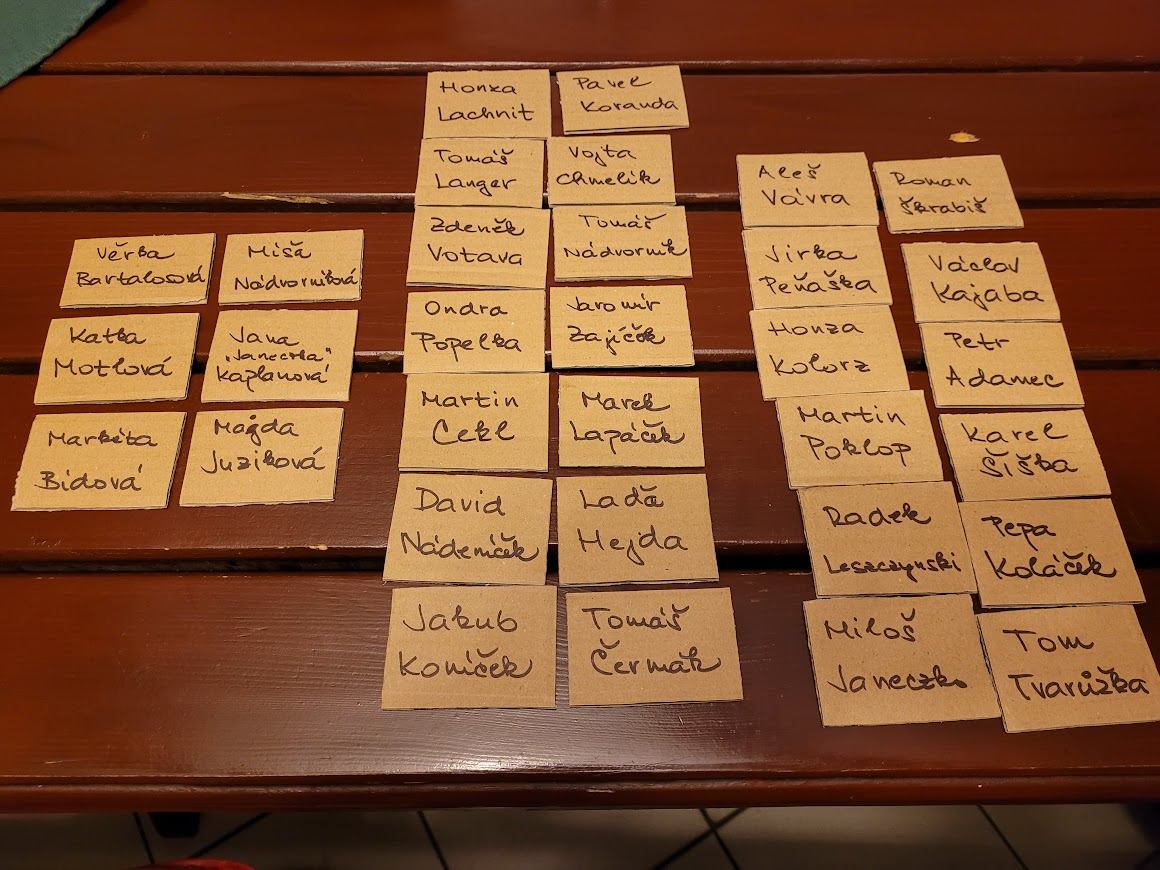 Věrka
Bartalosová
Míša
Nádvorníková
Katka
Motlová
Jana
„Janeczka"
Kaplanová
Markéta
Bidová
Magda
Juziková
Honza
Lachnit
Pavel
Koranda
Tomáš
Langer
Vojta
Chmelík
Zdeněk
Votava
Tomáš
Nádvorník
Ondra
Popelka
Jaromír
Zajíček
Martin
Cekl
Marek
Lapáček
David
Nádeníček
Laďa
Hejda
Jakub
Koníček
Tomáš
Čermák
Aleš
Vávra
Roman
Škrabiš
Jirka
Peňáška
Václav
Kajaba
Honza
Kolorz
Petr
Adamec
Martin
Poklop
Karel
Šiška
Radek
Leszczynski
Pepa
Koláček
Miloš
Janeczko
Tom
Tvarůžka